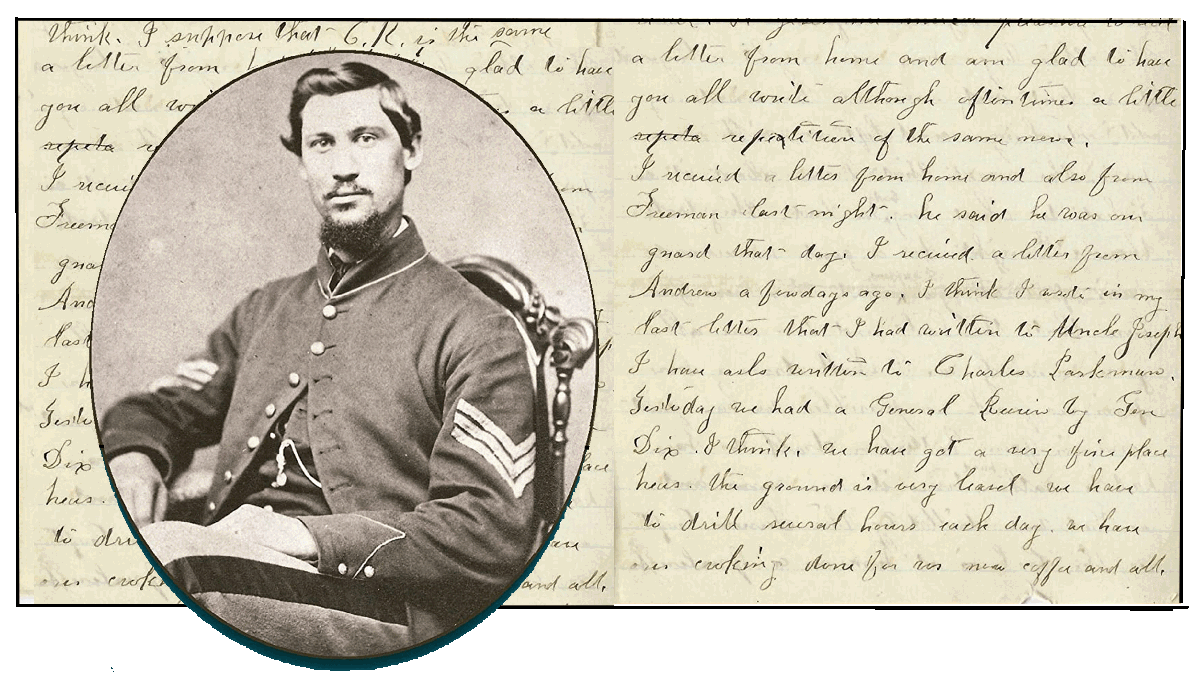 think. I suppose that C. K. is the same
a letter from glad to have
you all wri a little
repeta
I receiv
Freem
gua
And
last
I h
Yeste
Dix lace
hear.
to dri
our cooki and all.
a letter from home and am glad to have
you all write although oftentimes a little
repeta repeatition of the same news.
I received a letter from home and also from
Freeman last night. he said he was on
guard that day. I received a letter from
Andrew a few days ago. I think I wrote in my
last letter that I had written to Uncle Joseph
I have also written to Charles Parkman.
Yesterday we had a General Review by Gen
Dix. I think. we have got a very fine place
hear. the ground is very level we have
to drill several hours each day. we have
our cooking done for us now coffee and all.